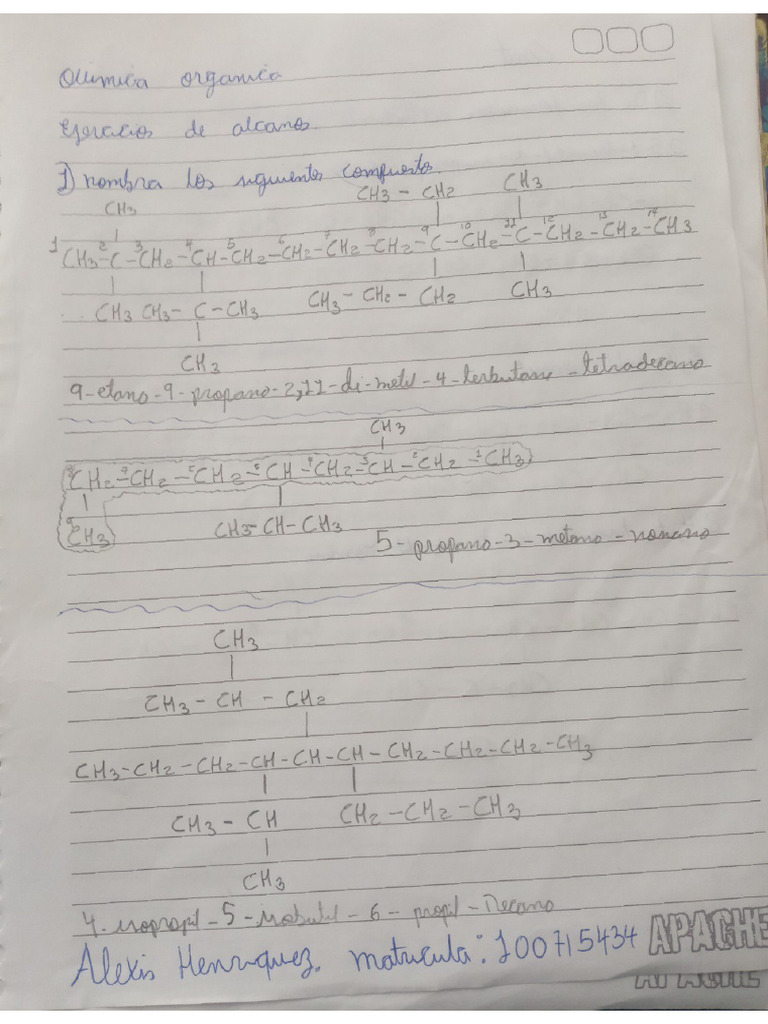 Quimica organica
Ejercicios de alcanos.
1) nombra los siguientes compuestos.
CH3 - CH2 CH3
CH3
1 2 3 4 5 6 7 8 9 10 11 12 13 14
CH3-C-CH2-CH-CH2-CH2-CH2-CH2-C-CH2-C-CH2-CH2-CH3
CH3 CH3-C-CH3 CH3-CH2-CH2 CH3
CH3
9-etano-9-propano-2,11-di-metil-4-terbutano-tetradecano
CH3
8 7 6 5 4 3 2 1
CH2-CH2-CH2-CH-CH2-CH-CH2-CH3
9
CH3 CH3-CH-CH3
5-propano-3-metano-nonano
CH3
CH3-CH-CH2
CH3-CH2-CH2-CH-CH-CH-CH2-CH2-CH2-CH3
CH3-CH CH2-CH2-CH3
CH3
4-isopropil-5-isobutil-6-propil-Decano
Alexis Henriquez. matricula: 100715434
APACHE
APACHE